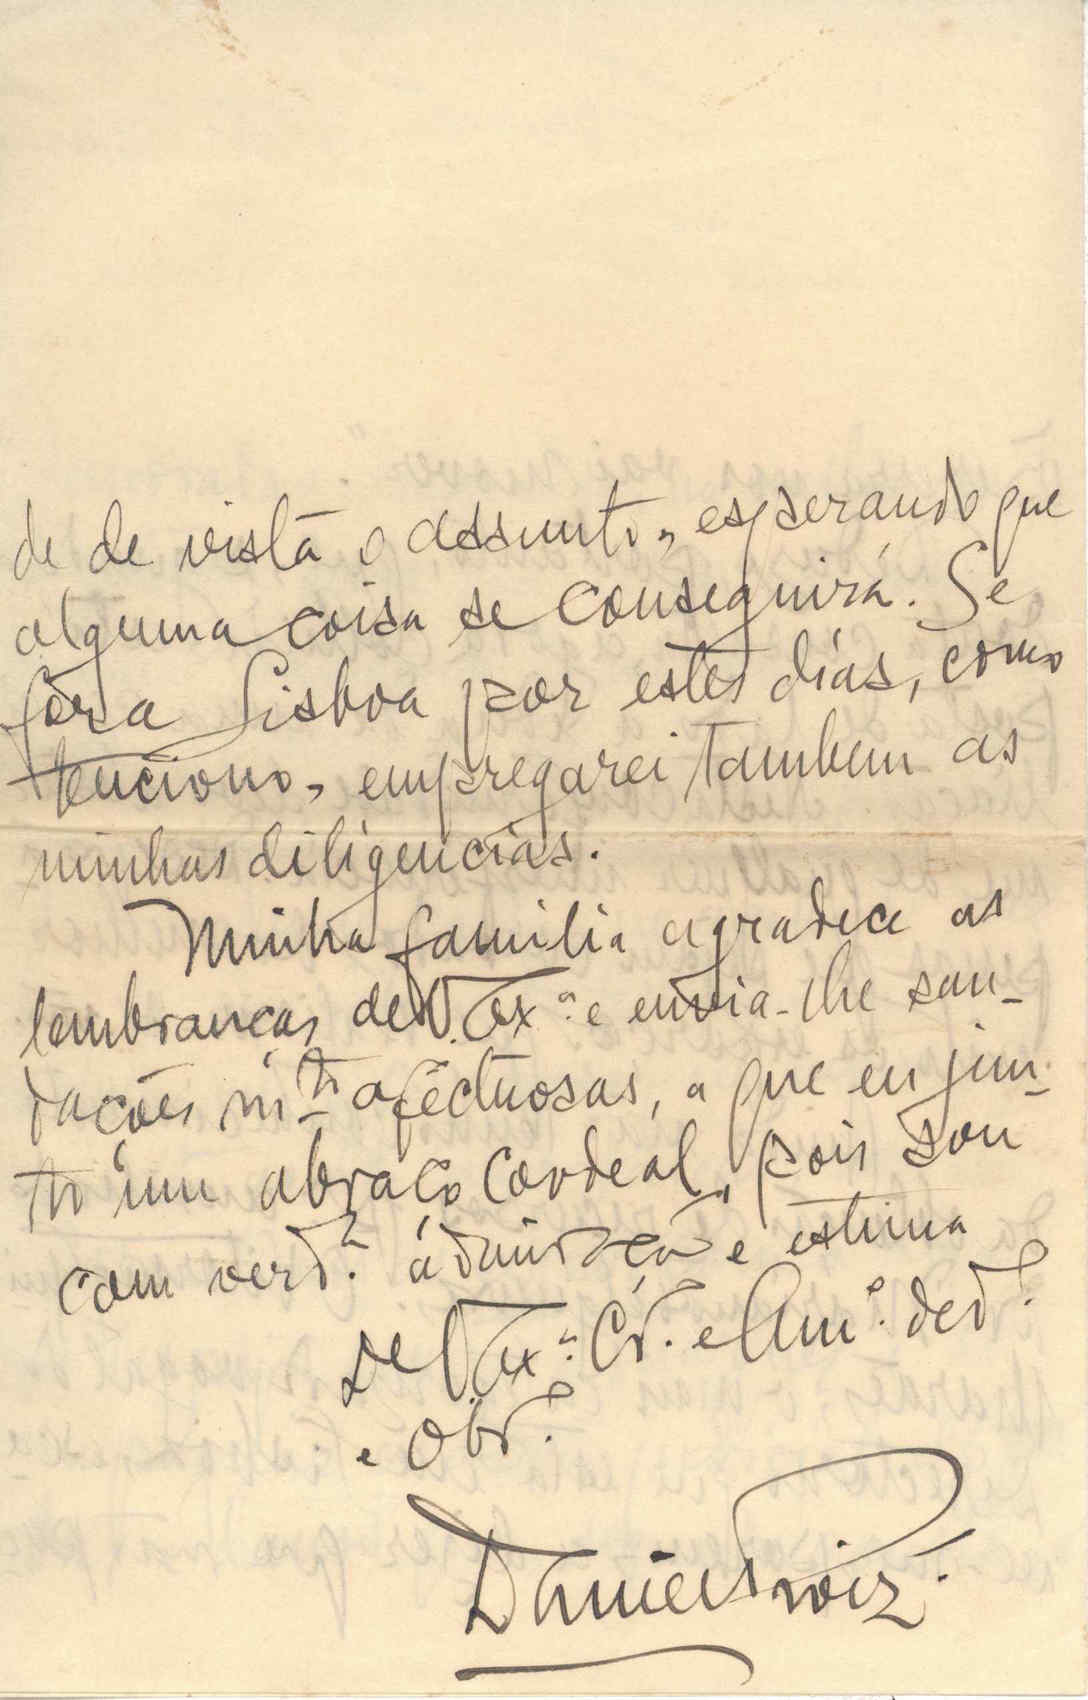 de de vista o assunto, esperando que
alguma coisa se conseguirá. Se
fôr a Lisboa por estes dias, como
tenciono, empregarei tambem as
minhas diligencias.
Minha familia agradece as
lembranças de V. Exª e envia-lhe sau-
dações mto afectuosas, a que eu jun-
to um abraço cordeal, pois sou
com verdª admiração e estima
De V. Exª Cr. e Amº dedº
e Obrº